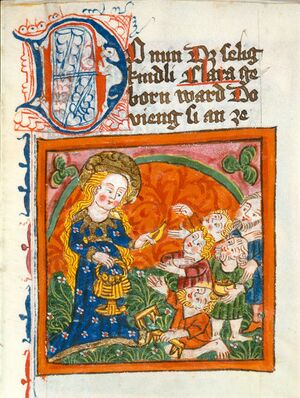 Do nun Dz selig
kindli Clara ge
born ward Do
vieng si an ze